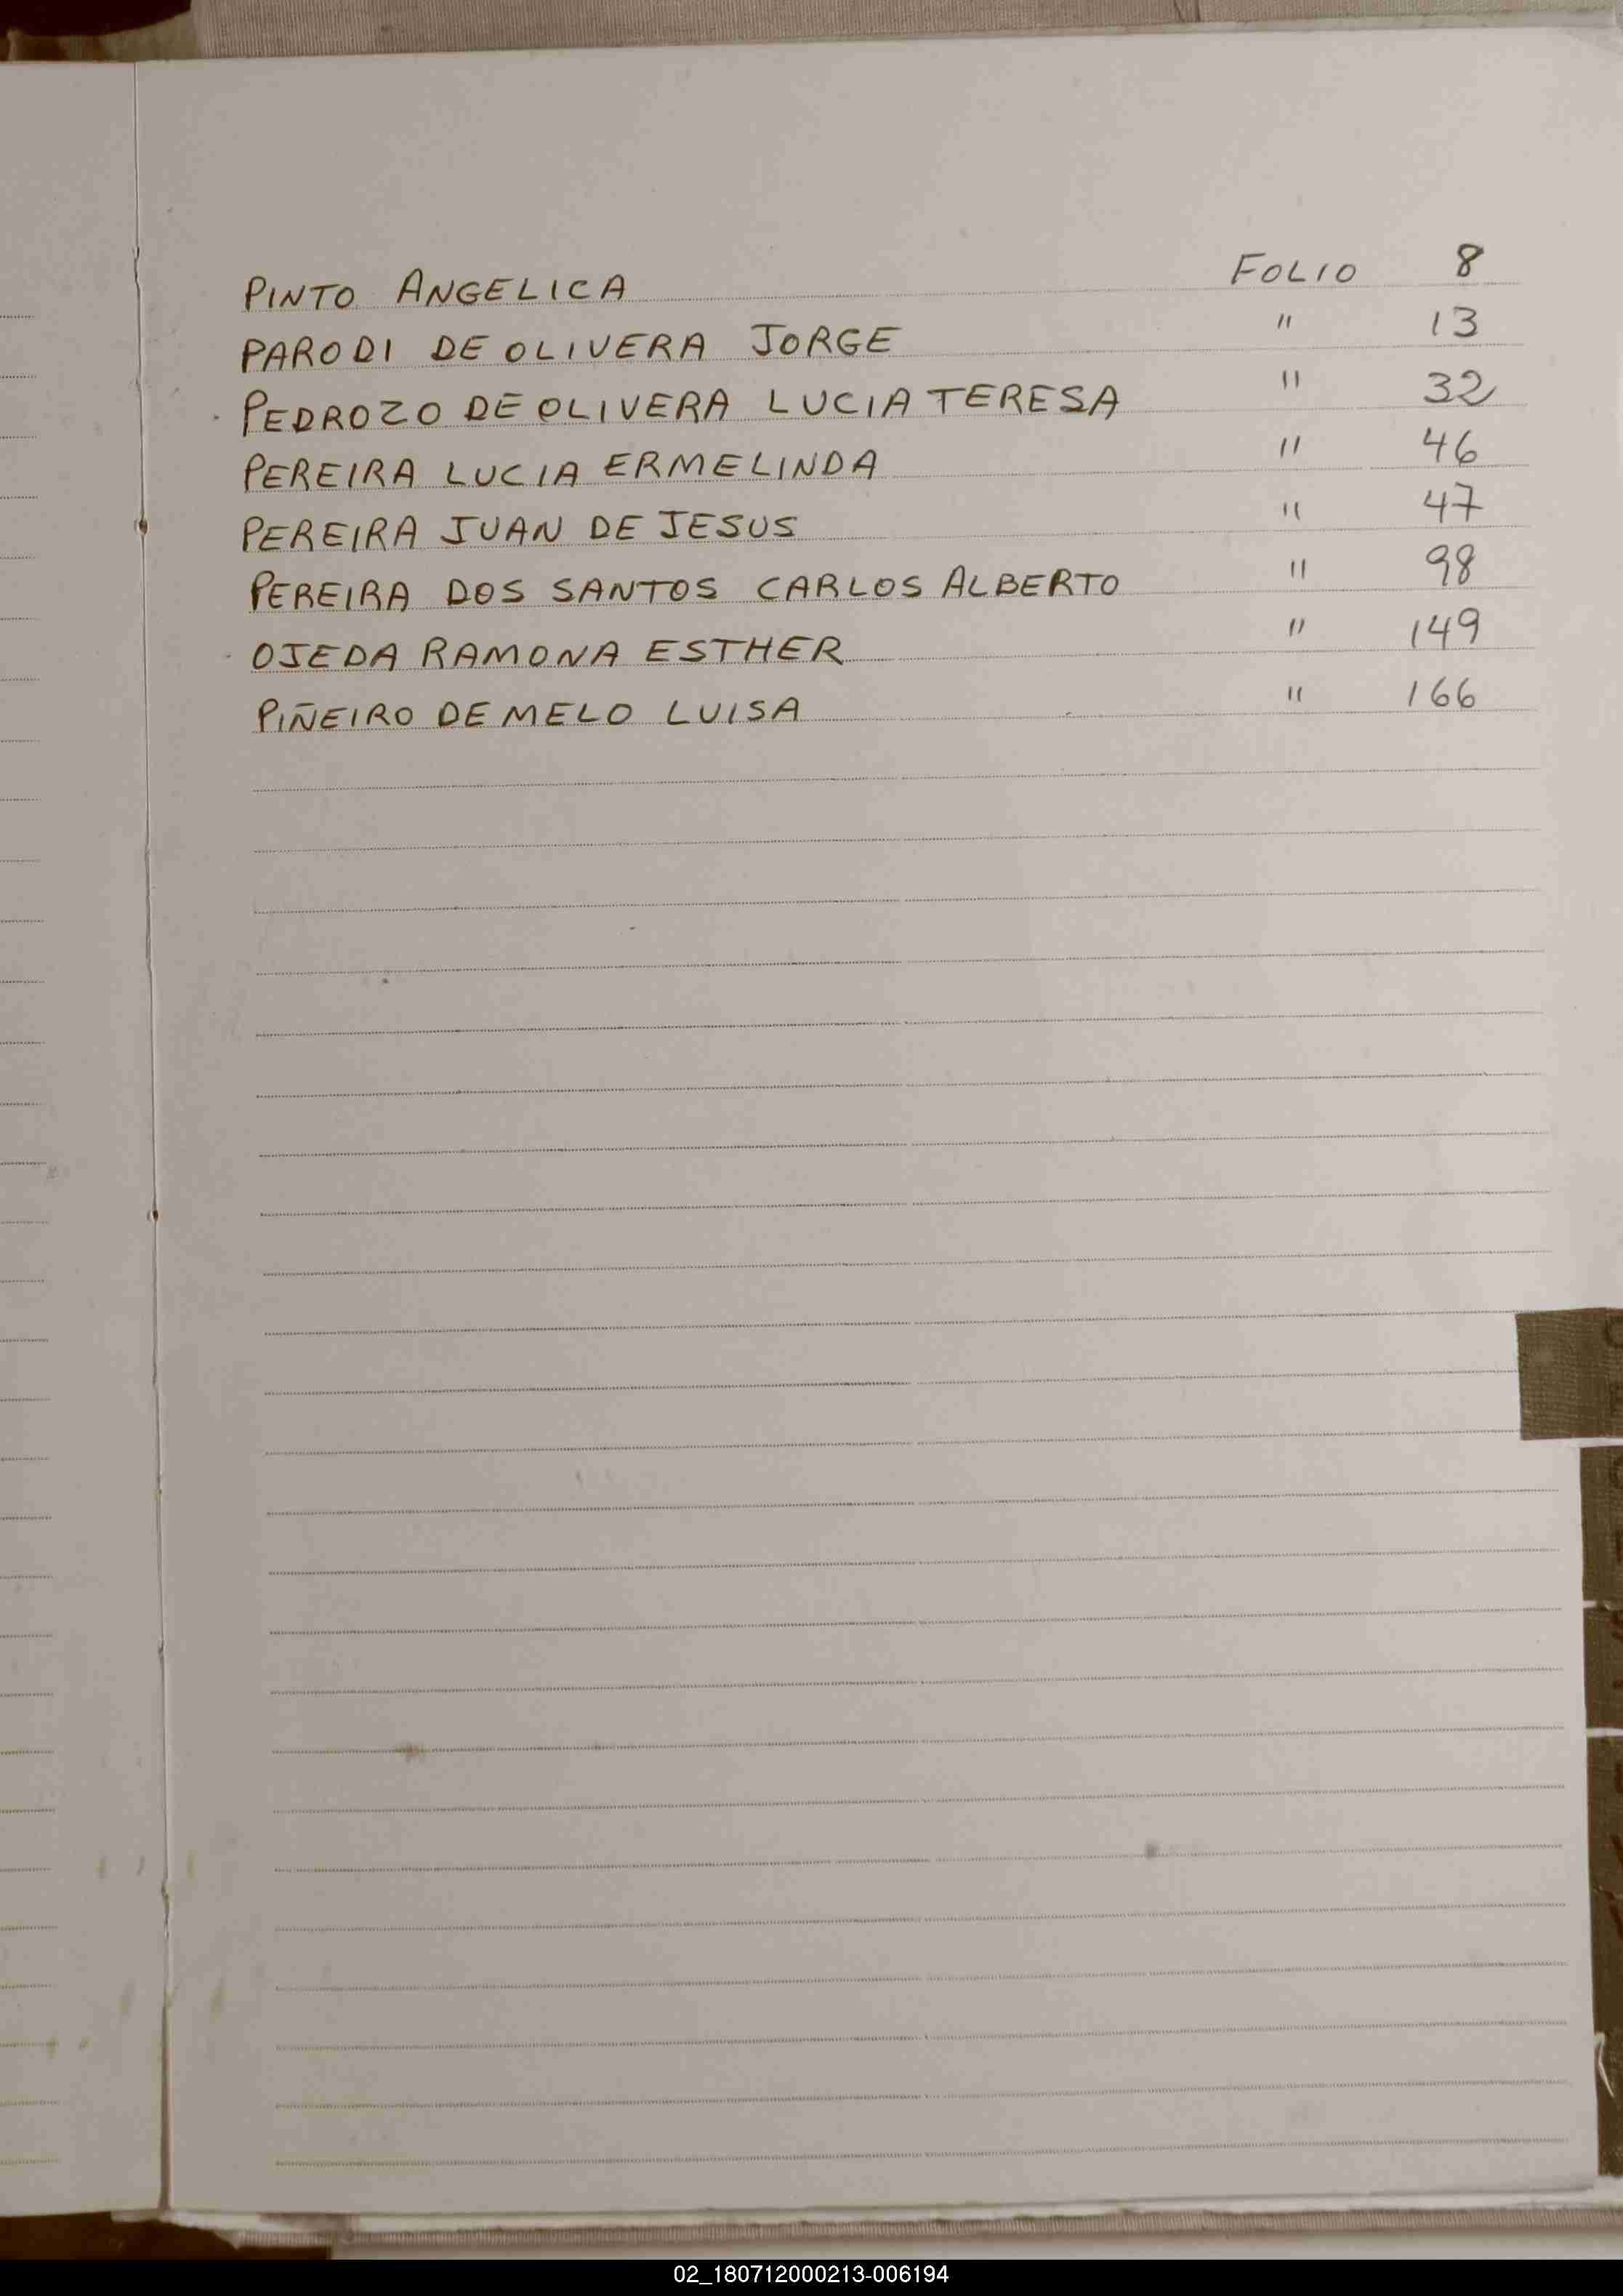 PINTO ANGELICA FOLIO 8
PARODI DE OLIVERA JORGE " 13
PEDROZO DE OLIVERA LUCIA TERESA " 32
PEREIRA LUCIA ERMELINDA " 46
PEREIRA JUAN DE JESUS " 47
PEREIRA DOS SANTOS CARLOS ALBERTO " 98
OJEDA RAMONA ESTHER " 149
PIÑEIRO DE MELO LUISA " 166
02_180712000213-006194